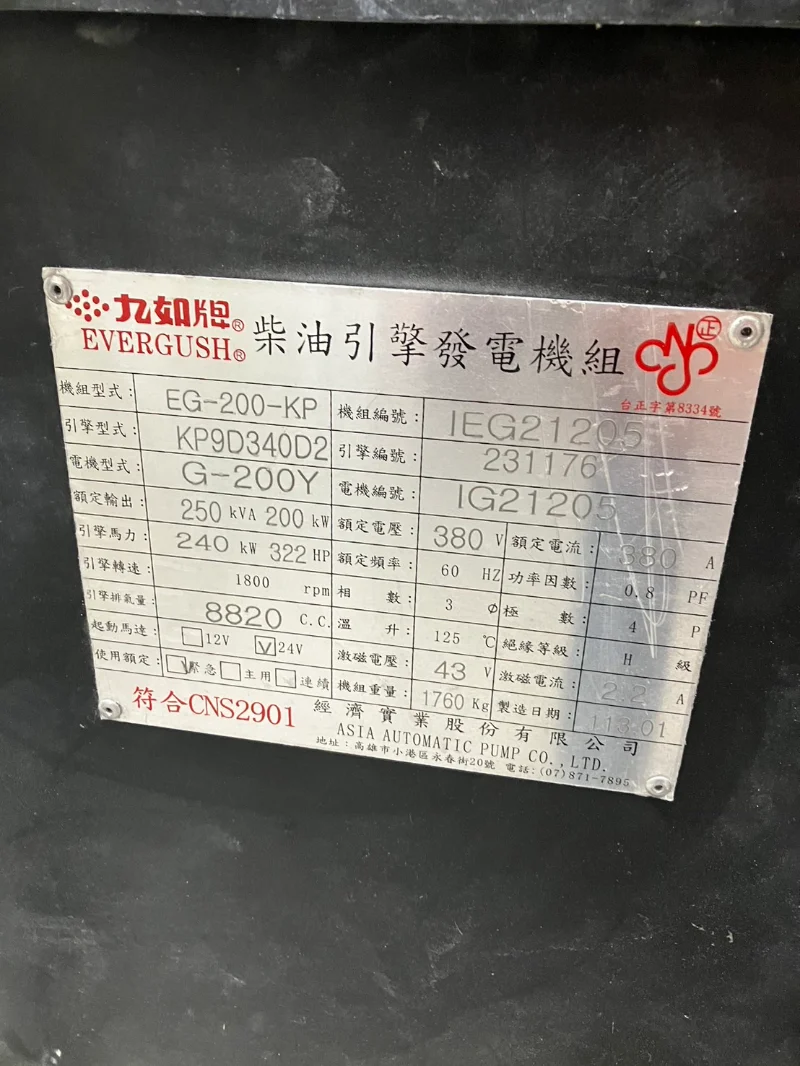 九如牌®
EVERGUSH®
柴油引擎發電機組
正
台正字第8334號
機組型式: EG-200-KP 機組編號: IEG21205
引擎型式: KP9D340D2 引擎編號: 231176
電機型式: G-200Y 電機編號: IG21205
額定輸出: 250 kVA 200 kW 額定電壓: 380 V 額定電流: 380 A
引擎馬力: 240 kW 322 HP 額定頻率: 60 HZ 功率因數: 0.8 PF
引擎轉速: 1800 rpm 相 數: 3 ø 極 數: 4 P
引擎排氣量: 8820 C.C. 溫 升: 125 ℃ 絕緣等級: H 級
起動馬達: ☐12V ☑24V 激磁電壓: 43 V 激磁電流: 2.2 A
使用額定: ☑緊急 ☐主用 ☐連續 機組重量: 1760 Kg 製造日期: 113.01
符合CNS2901
經濟實業股份有限公司
ASIA AUTOMATIC PUMP CO., LTD.
地址:高雄市小港區永春街20號 電話:(07)871-7895